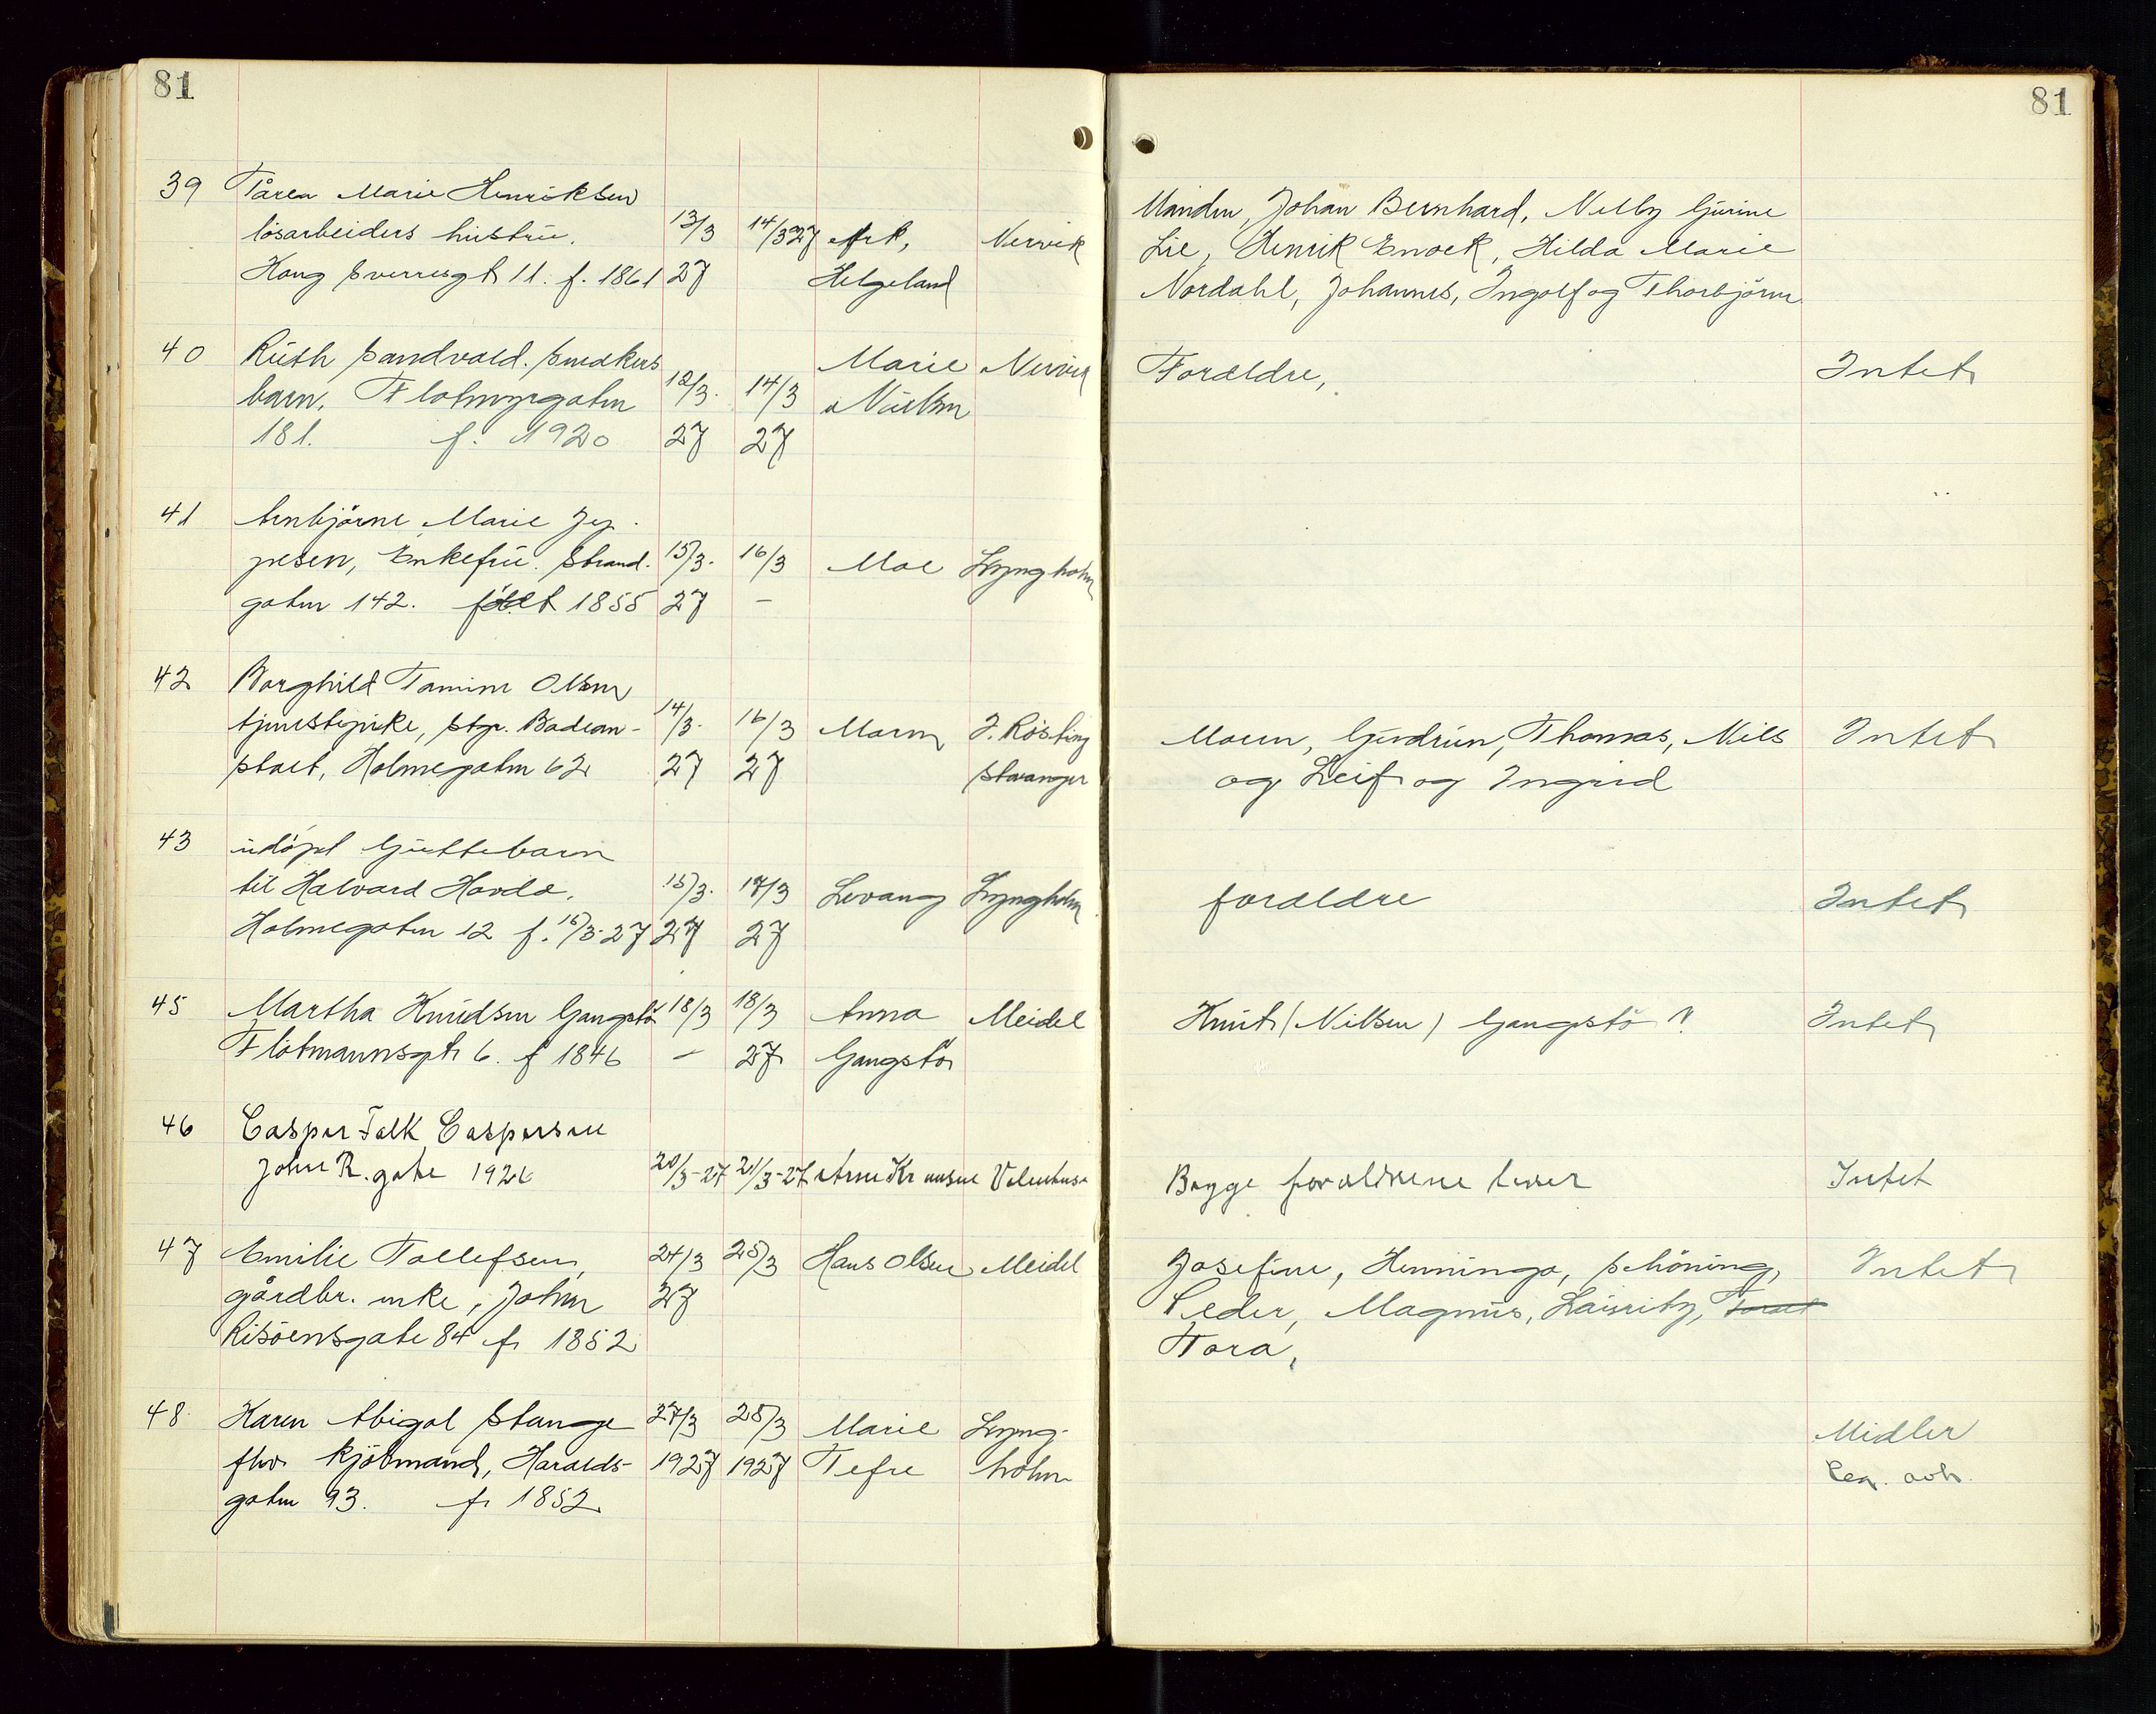 81
81
39 Tårea Marie Henriksen
løsarbeiders hustru. 13/3 14/3 27 Nervik
Kong Sverresgt 11. f. 1861 27 Helgeland
Manden, Johan Bernhard, Nelly Gurine
Lie, Henrik Enoek, Hilda Marie
Nordahl, Johannes, Ingolf og Thorbjørn
40 Ruth Sandvold. Snedkers Marie Nervik
barn, Flotmyrgaten 12/3. 14/3 Nielsen
181. f. 1920 27 27
Foreldre, Intet
41 Arnbjørne Marie Jep.
pesen, Enkefru. Strand. 15/3. 16/3 Moe Lyngholm
gaten 142. født 1855 27 –
42 Borghild Tamine Olsen
tjenestepike, Stgr. Badean- 14/3. 16/3 Moren J. Røsting
stalt, Holmegaten 62 27 27 Stavanger
Moren, Gudrun, Thomas, Nils Intet
og Leif og Ingrid
43 udøpt Guttebarn
til Halvard Havda. 15/3. 17/3 Levang Lyngholm
Holmegaten 12 f. 15/3-27 27 27
foreldre Intet
45 Martha Knudsen Gangstø 18/3 18/3 Anna Meidel
Flotmannsgt 6. f 1846 – 27 Gangstø
Knut (Nilsen) Gangstø ? Intet
46 Casper Falk Caspersen
John R. gate 1926 20/3-27 21/3-27 Arne
Begge foreldrene lever Intet
47 Emilie Tollefsen, 24/3 25/3 Hans Olsen Meidel
gårdbr. enke, John 27
Risøensgate 84 f. 1852
Josefine, Henninga, Schøning, Intet
Peder, Magnus, Lauritz,
Tora,
48 Karen Abigal Stange 27/3 28/3 Marie Lyng-
fhv. kjøbmand, Haralds- 1927 1927 Tefre holm
gaten 93. f. 1852
Midler